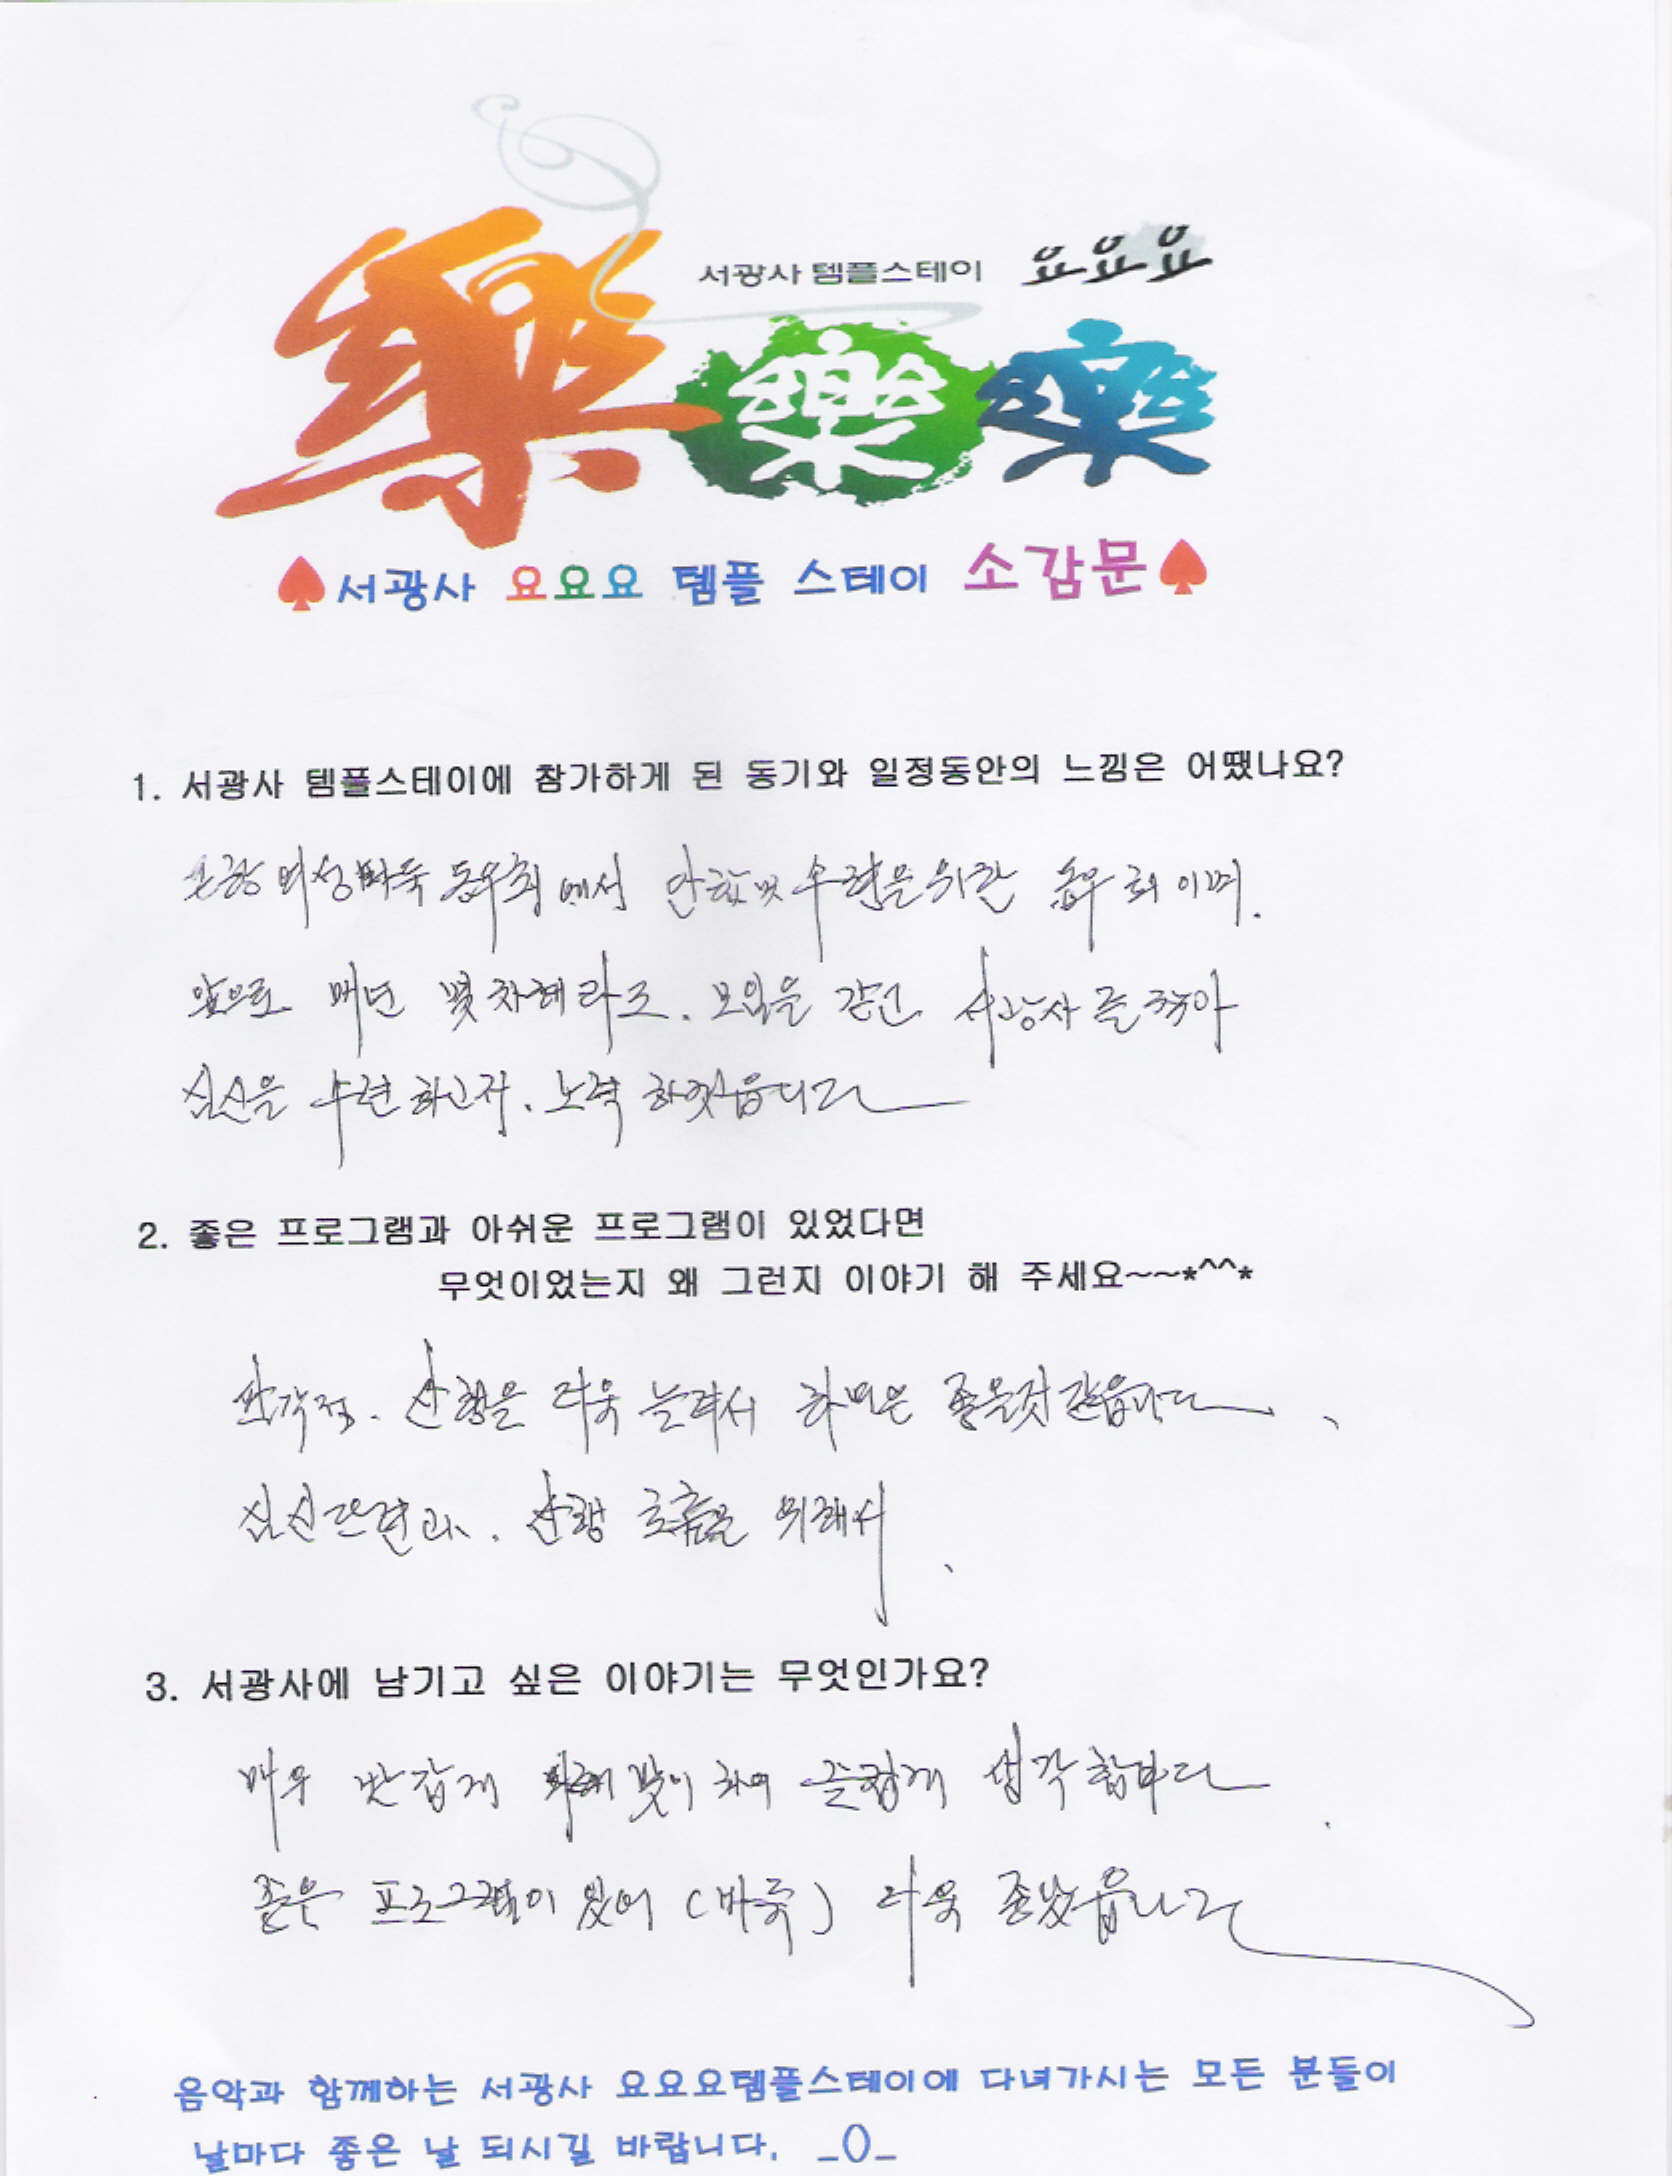 서광사 템플스테이 요요요
樂樂樂
서광사 요요요 템플 스테이 소감문
1. 서광사 템플스테이에 참가하게 된 동기와 일정동안의 느낌은 어땠나요?
여성바둑 동우회에서 수련을 위한 이며.
앞으로 매년 몇차례라도. 모임을 갖고 서광사를 찾아
심신을 수련하고자. 노력 하겟읍니다
2. 좋은 프로그램과 아쉬운 프로그램이 있었다면
무엇이었는지 왜 그런지 이야기 해 주세요~~*^^*
산행을 더욱 늘려서 하면은 좋을것 같읍니다.
심신단련과. 산행 호흡을 위해서.
3. 서광사에 남기고 싶은 이야기는 무엇인가요?
매우 반갑게 맞이 하여 즐겁게 생각 합니다.
좋은 프로그램이 있어 (바둑) 더욱 좋았읍니다
음악과 함께하는 서광사 요요요템플스테이에 다녀가시는 모든 분들이
날마다 좋은 날 되시길 바랍니다. _O_